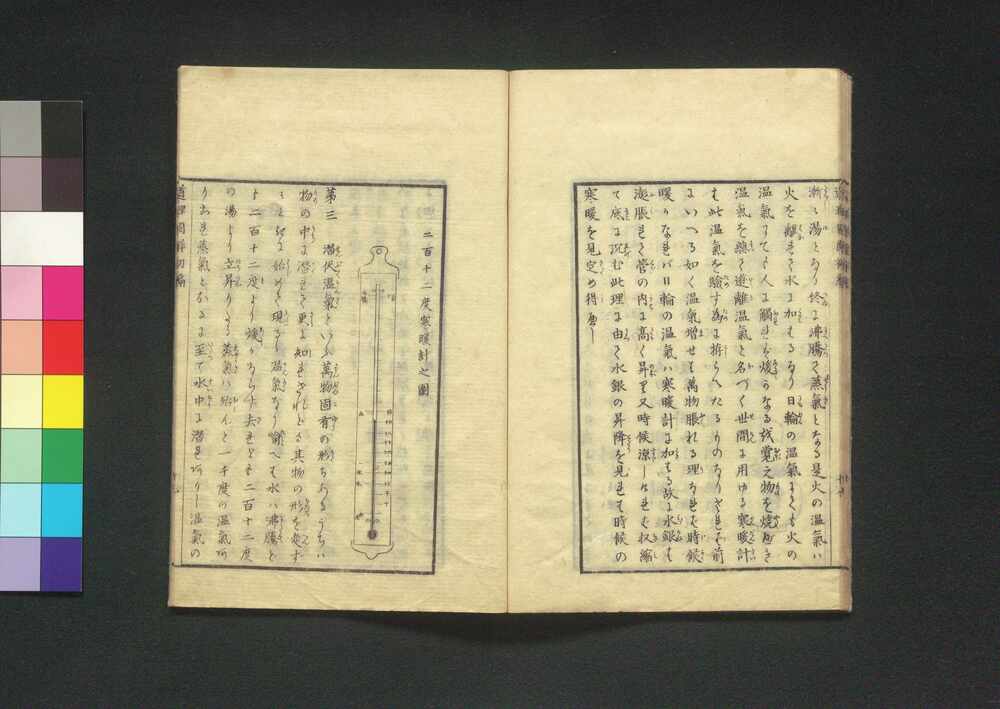 漸々湯となり終に沸騰て蒸氣となる是火の温氣ハ
火を離れて水に加はるなり日輪の温氣にても火の
温氣にても人に觸れは煖かなるを覚え物を焼べき
温氣を總て遊離温氣と名づく世間に用ゆる寒暖計
も此温氣を驗す為に拵らへたるものなりされば前
にいへる如く温氣増せは萬物脹れる理なれは時候
暖かなれバ日輪の温氣ハ寒暖計に加はる故に水銀も
澎脹れて管の内に高く昇り又時候涼しけれは収縮
て底に沈む此理に由て水銀の昇降を見れは時候の
寒暖を見定め得べし
二百十二度寒暖計之圖
第三 潜伏温氣といふハ萬物固有の物にあるうちハ
物の中に潜れて更に知れざれとも其物の形を変す
るとき始めて現るゝ温氣なり喩へは水ハ沸騰ると
も二百十二度より煖かならす去れとも二百十二度
の湯より立昇りたる蒸氣ハ殆んと一千度の温氣あ
り是蒸氣となるに至て水中に潜れありし温氣の